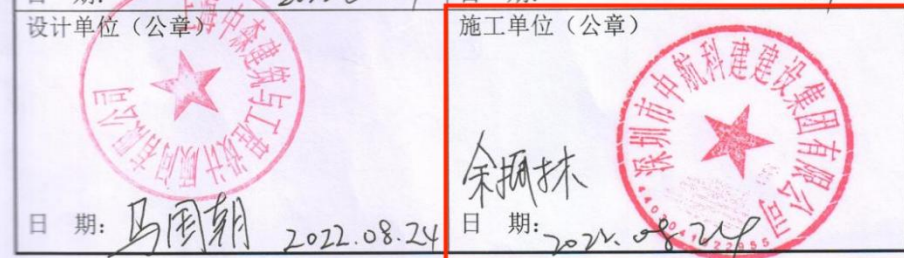 设计单位（公章）
上海中森建筑与工程设计顾问有限公司
日 期：
马国朝
2022.08.24
施工单位（公章）
深圳市中航科建建设集团有限公司
日 期：
2022.08.24